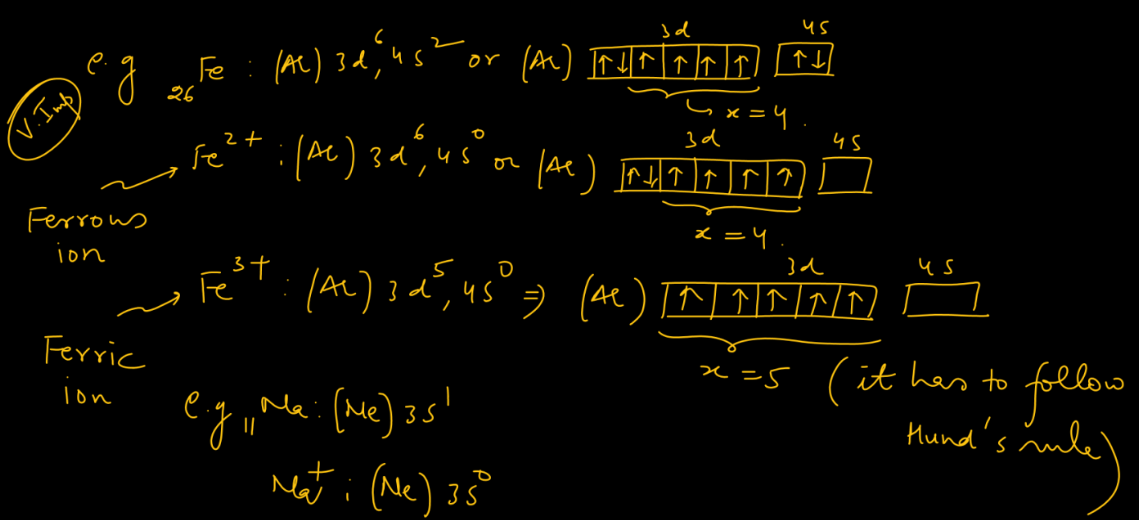 V. Imp
e.g ₂₆Fe : (Ar) 3d⁶, 4s² or (Ar) 3d ↑↓ ↑ ↑ ↑ ↑ 4s ↑↓
x = 4.
Fe²⁺ : (Ar) 3d⁶, 4s⁰ or (Ar) 3d ↑↓ ↑ ↑ ↑ ↑ 4s
x = 4.
Ferrous
ion
Fe³⁺ : (Ar) 3d⁵, 4s⁰ ⇒ (Ar) 3d ↑ ↑ ↑ ↑ ↑ 4s
x = 5 (it has to follow
Hund's rule)
Ferric
ion
e.g ₁₁Na : (Ne) 3s¹
Na⁺ : (Ne) 3s⁰